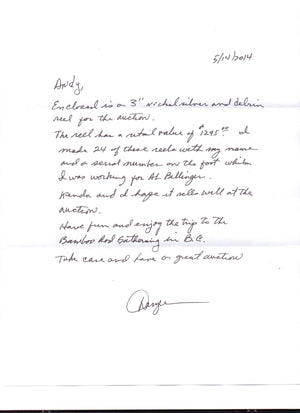 5/14/2014
Andy,
Enclosed is a 3" nickel silver and delrin
reel for the auction.
The reel has a retail value of $1295.00 I
made 24 of these reels with my name
and a serial number on the foot while
I was working for AL Bellinger.
and I hope it sells well at the
auction.
Have fun and enjoy the trip to the
Bamboo Rod Gathering in B.C.
Take care and have a great auction